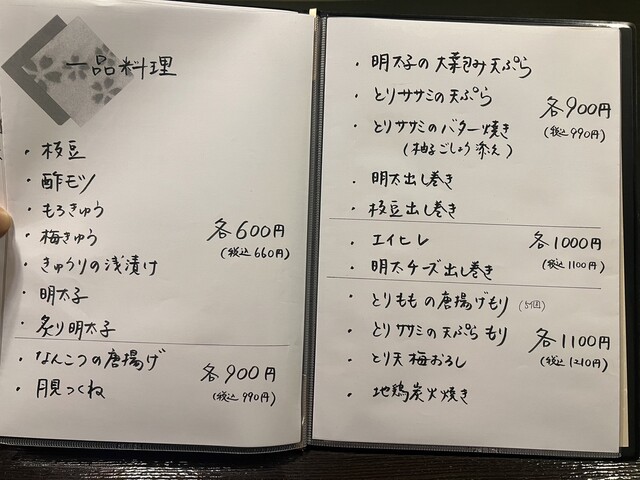 一品料理
・枝豆
・酢モツ
・もろきゅう
・梅きゅう
・きゅうりの浅漬け
・明太子
・炙り明太子
各600円
(税込660円)
・なんこつの唐揚げ
・月見つくね
各900円
(税込990円)
・明太子の大葉包み天ぷら
・とりササミの天ぷら
・とりササミのバター焼き
(柚子ごしょう添え)
・明太出し巻き
・枝豆出し巻き
各900円
(税込990円)
・エイヒレ
・明太チーズ出し巻き
各1000円
(税込1100円)
・とりももの唐揚げもり(5個)
・とりササミの天ぷらもり
・とり天梅おろし
・地鶏炭火焼き
各1100円
(税込1210円)